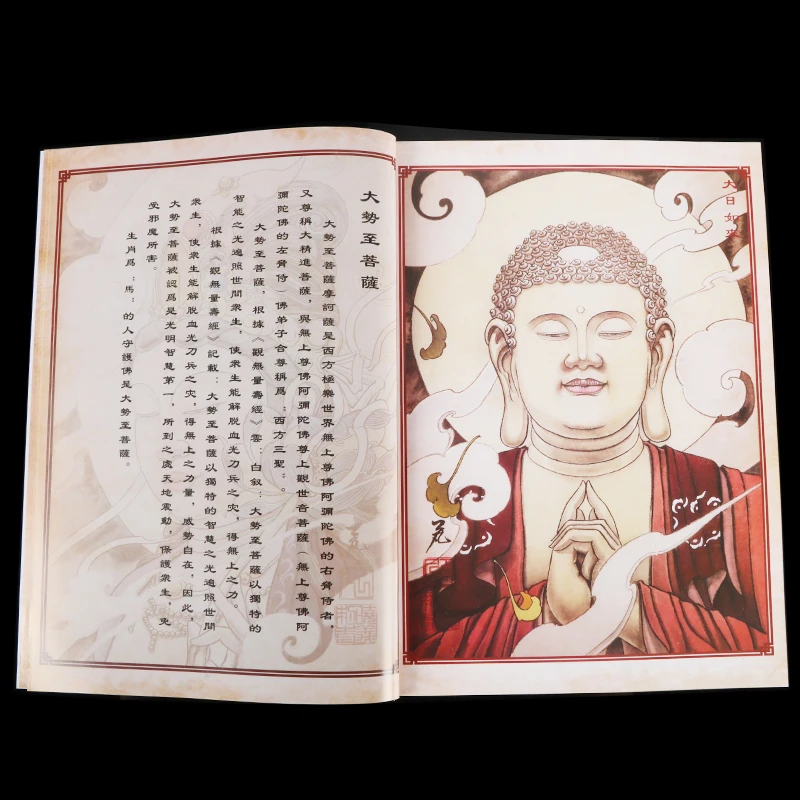 大勢至菩薩
大勢至菩薩摩訶薩是西方極樂世界無上尊佛阿彌陀佛的右脅侍者，
又尊稱大精進菩薩，與無上尊佛阿彌陀佛尊上觀世音菩薩（無上尊佛阿
彌陀佛的左脅侍）佛弟子合尊稱爲：西方三聖"。
大勢至菩薩，根據《觀無量壽經》雲：白叙：大勢至菩薩以獨特的
智能之光遍照世間衆生，使衆生能解脫血光刀兵之灾，得無上之力。
根據《觀無量壽經》記載：大勢至菩薩以獨特的智慧之光遍照世間
衆生，使衆生能解脫血光刀兵之灾，得無上之力量，威勢自在，因此，
大勢至菩薩被認爲是光明智慧第一，所到之處天地震動，保護衆生，免
受邪魔所害。
生肖爲：馬：的人守護佛是大勢至菩薩。
大日如來